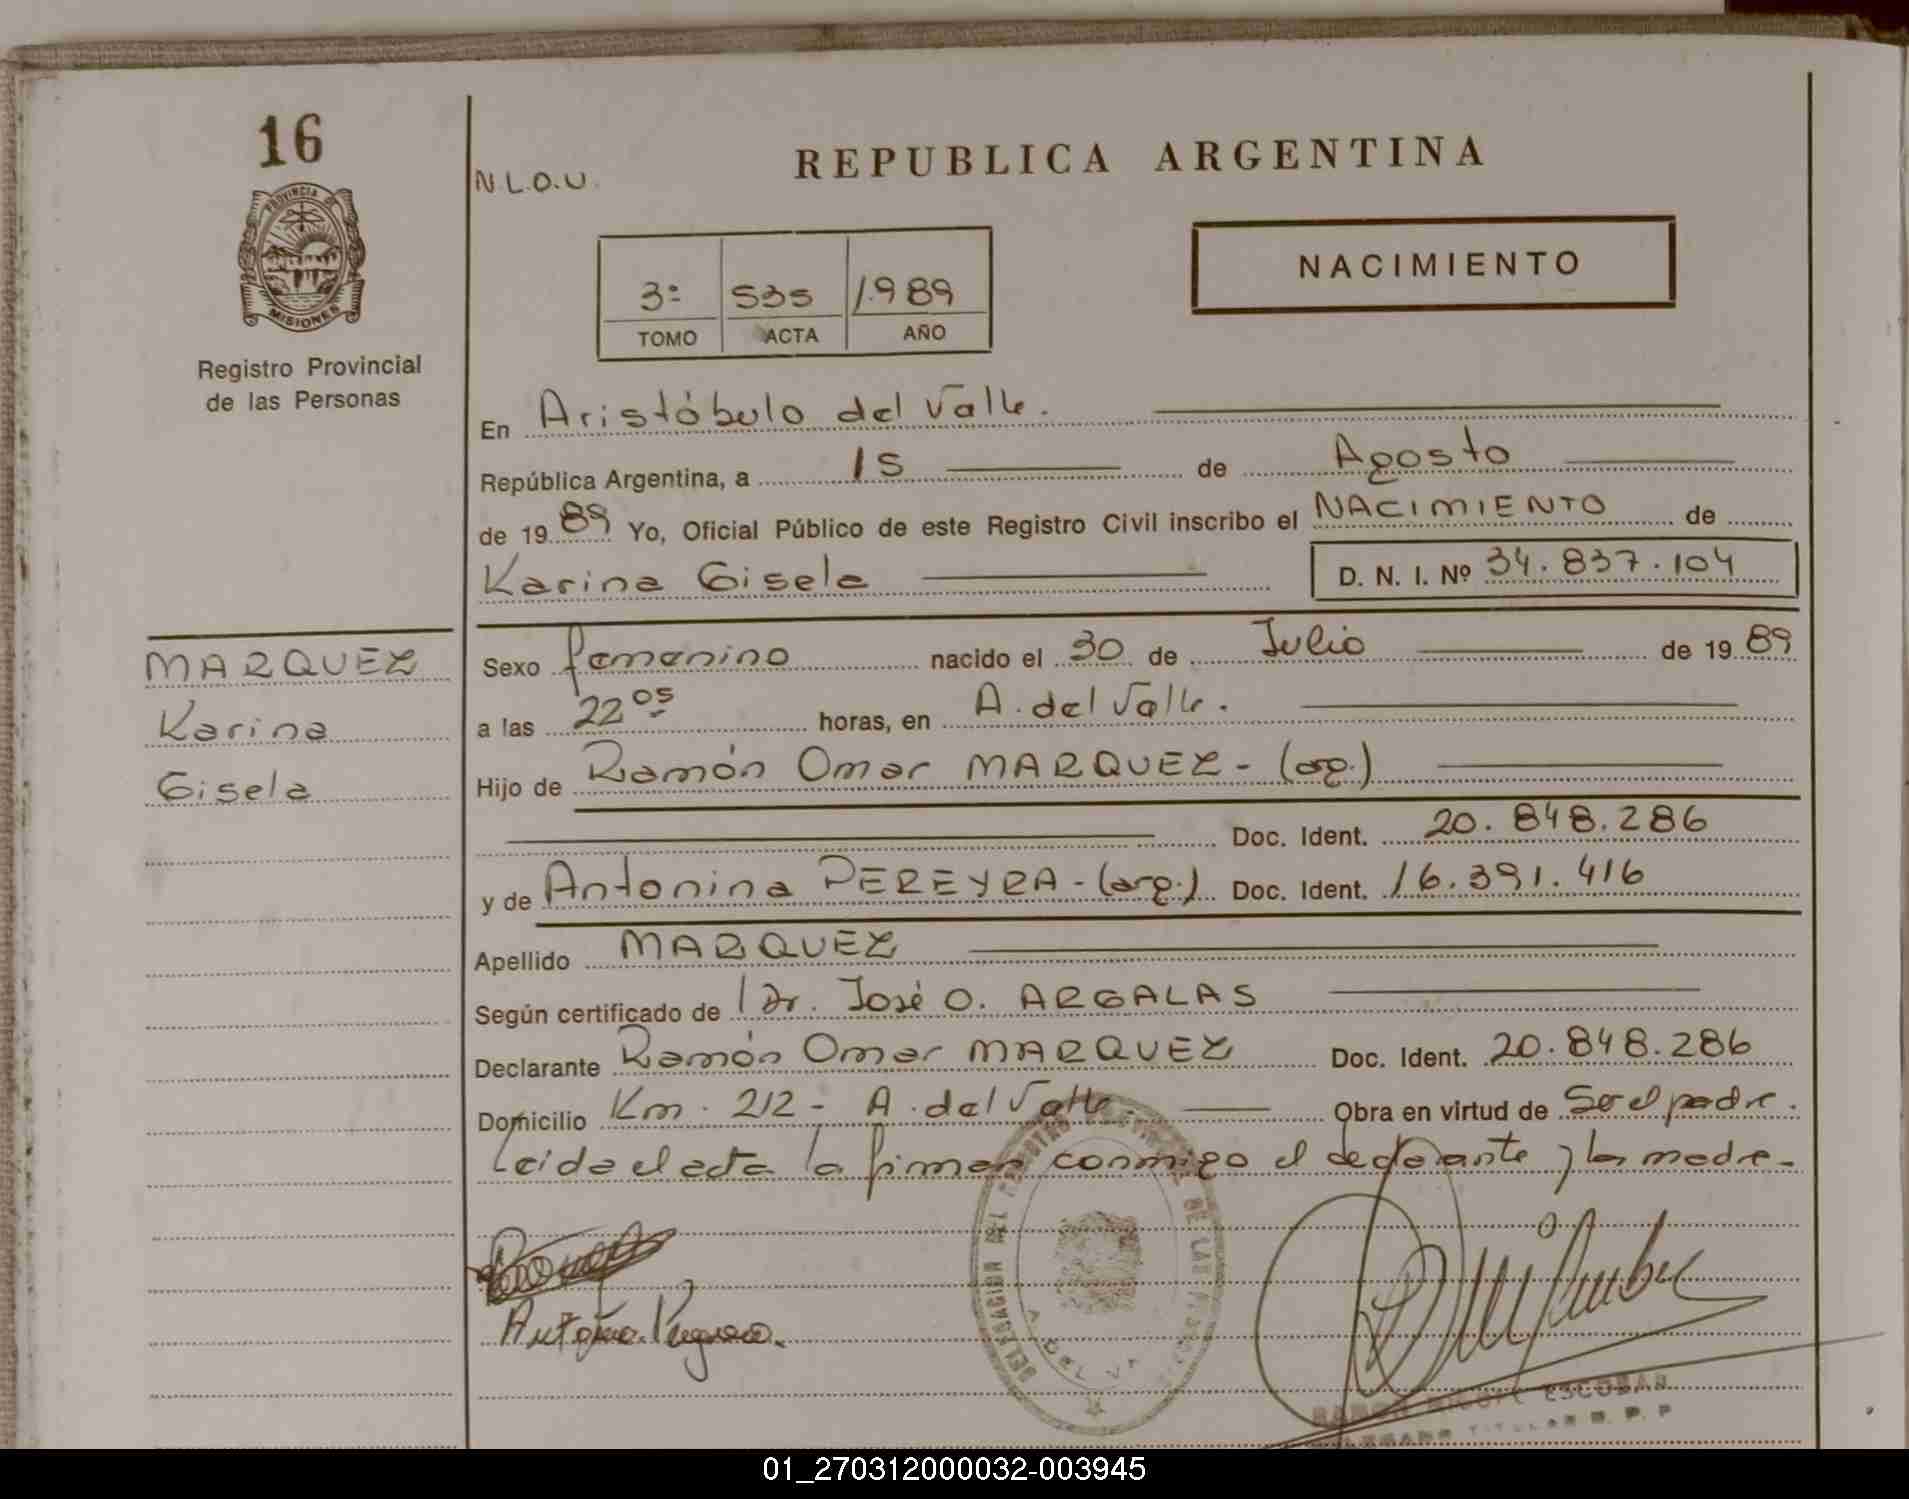 16
PROVINCIA DE
MISIONES
Registro Provincial
de las Personas
MARQUEZ
Karina
Gisela
N.L.O.U.
REPUBLICA ARGENTINA
3º 535 1.989
TOMO ACTA AÑO
NACIMIENTO
En Aristóbulo del Valle.
República Argentina, a 15 de Agosto
de 19 89 Yo, Oficial Público de este Registro Civil inscribo el NACIMIENTO de
Karina Gisela D. N. I. Nº 34.837.104
Sexo femenino nacido el 30 de Julio de 19 89
a las 22 05 horas, en A. del Valle.
Hijo de Ramón Omar MARQUEZ - (arg.)
Doc. Ident. 20.848.286
y de Antonina PEREYRA - (arg.) Doc. Ident. 16.391.416
Apellido MARQUEZ
Según certificado de Dr. José O. ARGALAS
Declarante Ramón Omar MARQUEZ Doc. Ident. 20.848.286
Domicilio Km. 212 - A. del Valle. Obra en virtud de Ser el padre.
Leida el acta la firman conmigo el declarante y la madre -
DELEGACION DEL REGISTRO DE LAS
ESCOBAR
TITULAR R. P. P
01_270312000032-003945